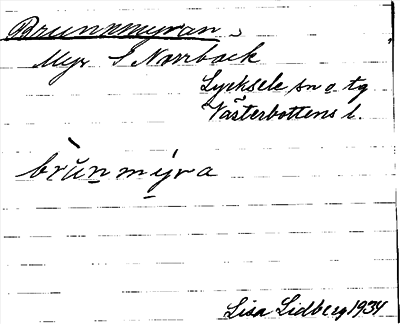 Brunnmyran
Myr S Norrback
Lycksele sn o. tg
Västerbottens l.
brùn̠mýra
Lisa Lidberg 1934